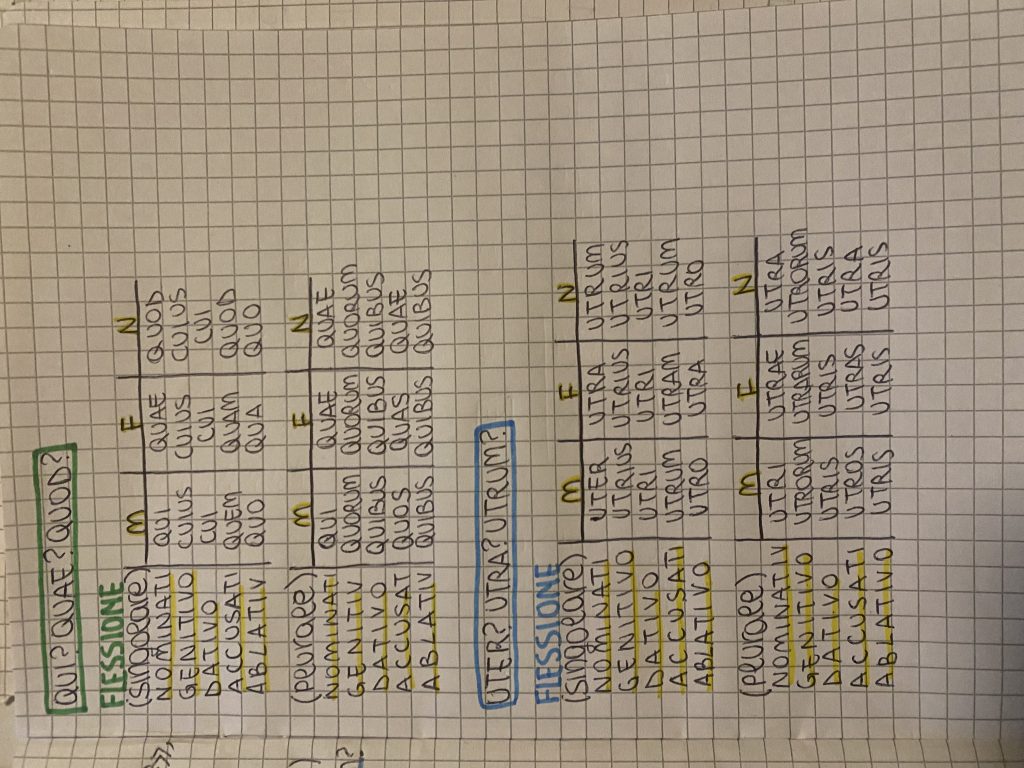 QUI? QUAE? QUOD?
FLESSIONE
(singolare) M F N
NOMINATI QUI QUAE QUOD
GENITIVO CUIUS CUIUS CUIUS
DATIVO CUI CUI CUI
ACCUSATI QUEM QUAM QUOD
ABLATIV QUO QUA QUO
(plurale) M F N
NOMINATI QUI QUAE QUAE
GENITIV QUORUM QUORUM QUORUM
DATIVO QUIBUS QUIBUS QUIBUS
ACCUSAT QUOS QUAS QUAE
ABLATIV QUIBUS QUIBUS QUIBUS
UTER? UTRA? UTRUM?
FLESSIONE
(singolare) M F N
NOMINATI UTER UTRA UTRUM
GENITIVO UTRIUS UTRIUS UTRIUS
DATIVO UTRI UTRI UTRI
ACCUSATI UTRUM UTRAM UTRUM
ABLATIVO UTRO UTRA UTRO
(plurale) M F N
NOMINATIV UTRI UTRAE UTRA
GENITIVO UTRORUM UTRARUM UTRORUM
DATIVO UTRIS UTRIS UTRIS
ACCUSATI UTROS UTRAS UTRA
ABLATIVO UTRIS UTRIS UTRIS